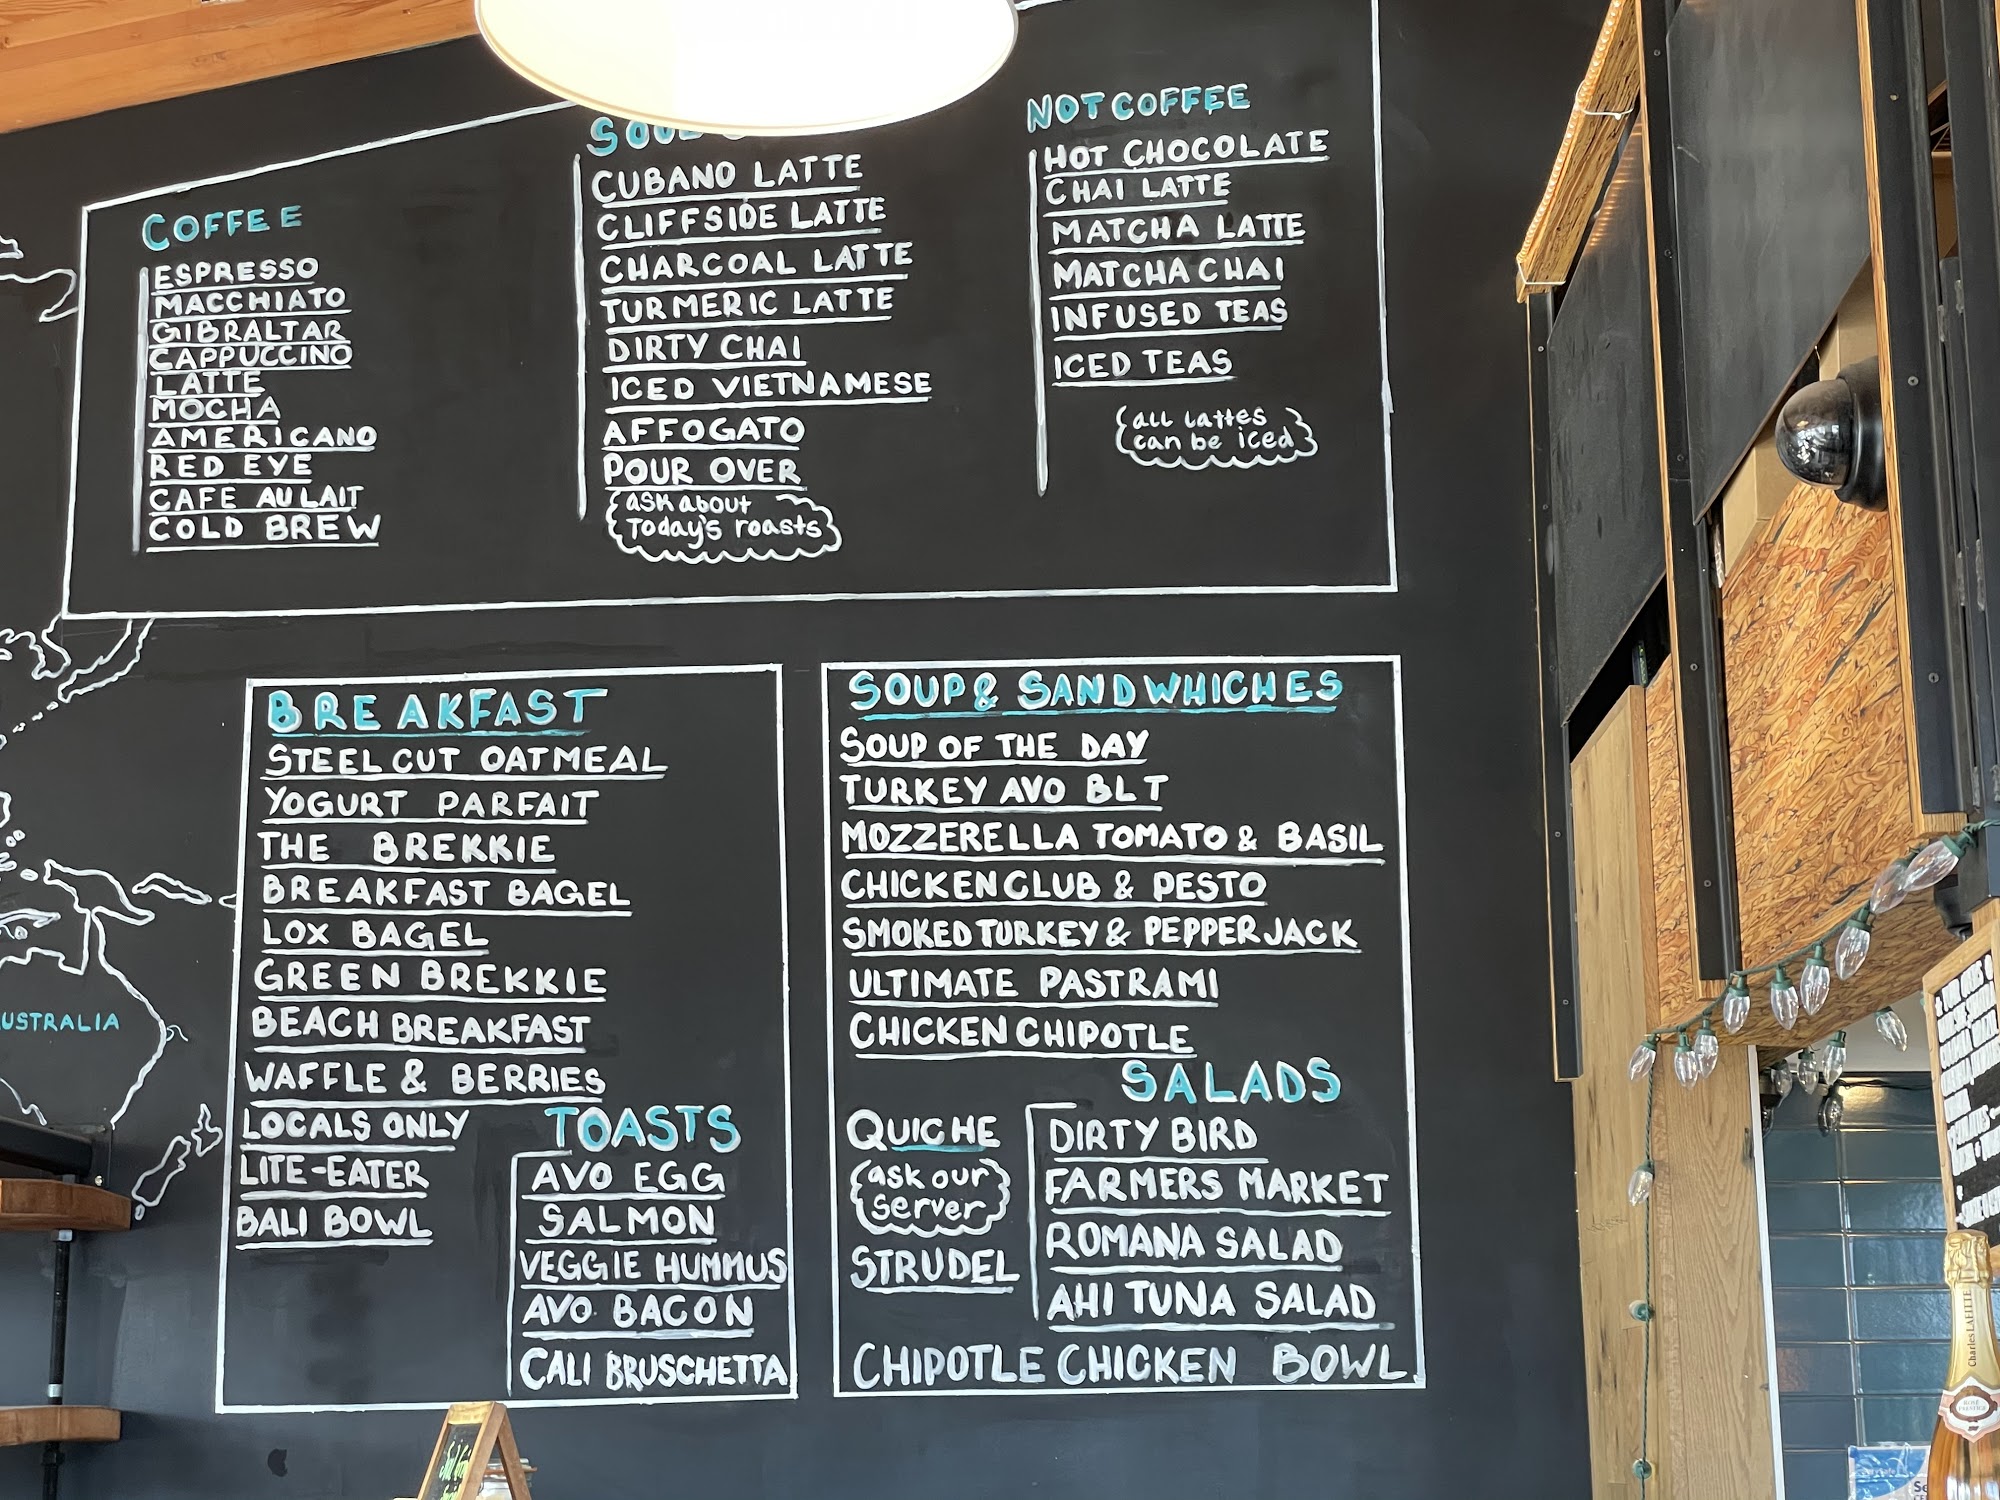 COFFEE
ESPRESSO
MACCHIATO
GIBRALTAR
CAPPUCCINO
LATTE
MOCHA
AMERICANO
RED EYE
CAFE AU LAIT
COLD BREW
CUBANO LATTE
CLIFFSIDE LATTE
CHARCOAL LATTE
TURMERIC LATTE
DIRTY CHAI
ICED VIETNAMESE
AFFOGATO
POUR OVER
ask about
Today's roasts
NOT COFFEE
HOT CHOCOLATE
CHAI LATTE
MATCHA LATTE
MATCHA CHAI
INFUSED TEAS
ICED TEAS
all lattes
can be iced
BREAKFAST
STEEL CUT OATMEAL
YOGURT PARFAIT
THE BREKKIE
BREAKFAST BAGEL
LOX BAGEL
GREEN BREKKIE
BEACH BREAKFAST
WAFFLE & BERRIES
LOCALS ONLY
LITE-EATER
BALI BOWL
TOASTS
AVO EGG
SALMON
VEGGIE HUMMUS
AVO BACON
CALI BRUSCHETTA
SOUP & SANDWHICHES
SOUP OF THE DAY
TURKEY AVO BLT
MOZZERELLA TOMATO & BASIL
CHICKEN CLUB & PESTO
SMOKED TURKEY & PEPPER JACK
ULTIMATE PASTRAMI
CHICKEN CHIPOTLE
QUICHE
ask our
server
STRUDEL
SALADS
DIRTY BIRD
FARMERS MARKET
ROMANA SALAD
AHI TUNA SALAD
CHIPOTLE CHICKEN BOWL
USTRALIA
Charles LAFITTE